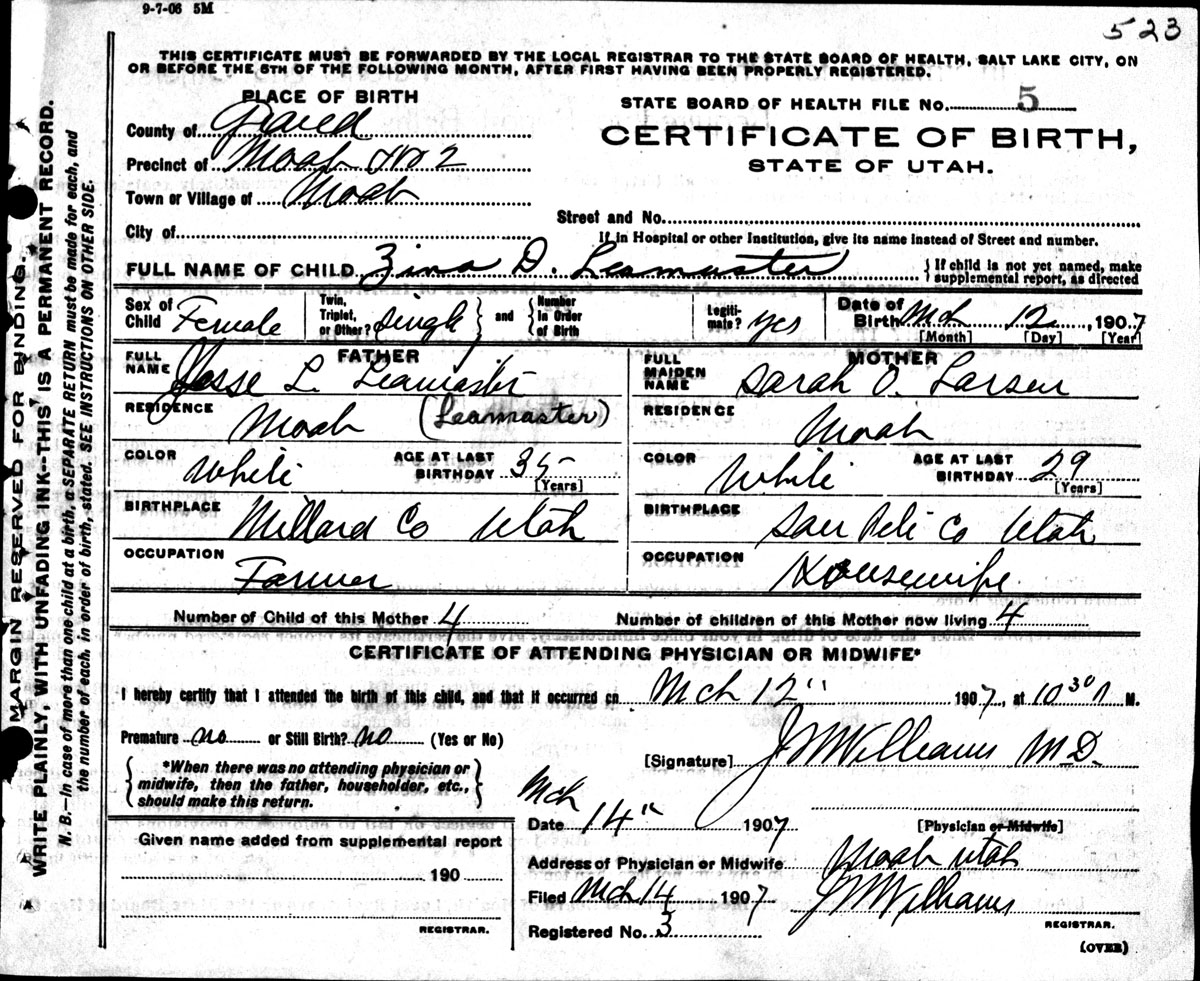 9-7-06 5M
523
THIS CERTIFICATE MUST BE FORWARDED BY THE LOCAL REGISTRAR TO THE STATE BOARD OF HEALTH, SALT LAKE CITY, ON
OR BEFORE THE 5TH OF THE FOLLOWING MONTH, AFTER FIRST HAVING BEEN PROPERLY REGISTERED.
PLACE OF BIRTH
STATE BOARD OF HEALTH FILE No. 5
County of Grand
CERTIFICATE OF BIRTH,
Precinct of Moab No 2
STATE OF UTAH.
Town or Village of Moab
Street and No.
City of
If in Hospital or other Institution, give its name instead of Street and number.
FULL NAME OF CHILD Zina D. Leamaster { If child is not yet named, make supplemental report, as directed
Sex of Child Female Twin, Triplet, or Other? Single } and { Number in Order of Birth Legiti-mate? yes Date of Birth Mch 12, 1907
[Month] [Day] [Year]
FATHER MOTHER
FULL NAME Jesse L. Leamaster FULL MAIDEN NAME Sarah O. Larsen
RESIDENCE Moab (Leamaster) RESIDENCE Moab
COLOR White AGE AT LAST BIRTHDAY 35 [Years] COLOR White AGE AT LAST BIRTHDAY 29 [Years]
BIRTHPLACE Millard Co Utah BIRTHPLACE San Pete Co Utah
OCCUPATION Farmer OCCUPATION Housewife
Number of Child of this Mother 4 Number of children of this Mother now living 4
CERTIFICATE OF ATTENDING PHYSICIAN OR MIDWIFE*
I hereby certify that I attended the birth of this child, and that it occurred on Mch 12" 1907, at 10 30 M.
Premature no or Still Birth? no (Yes or No)
[Signature] J W Williams M.D.
{ *When there was no attending physician or
midwife, then the father, householder, etc.,
should make this return. }
Date Mch 14" 1907 [Physician or Midwife]
Given name added from supplemental report
Address of Physician or Midwife Moab Utah
190
Filed Mch 14 1907 J W Williams
REGISTRAR.
REGISTRAR.
Registered No. 3
(OVER)
MARGIN RESERVED FOR BINDING.
WRITE PLAINLY, WITH UNFADING INK--THIS IS A PERMANENT RECORD.
N. B.—In case of more than one child at a birth, a SEPARATE RETURN must be made for each, and
the number of each, in order of birth, stated. SEE INSTRUCTIONS ON OTHER SIDE.